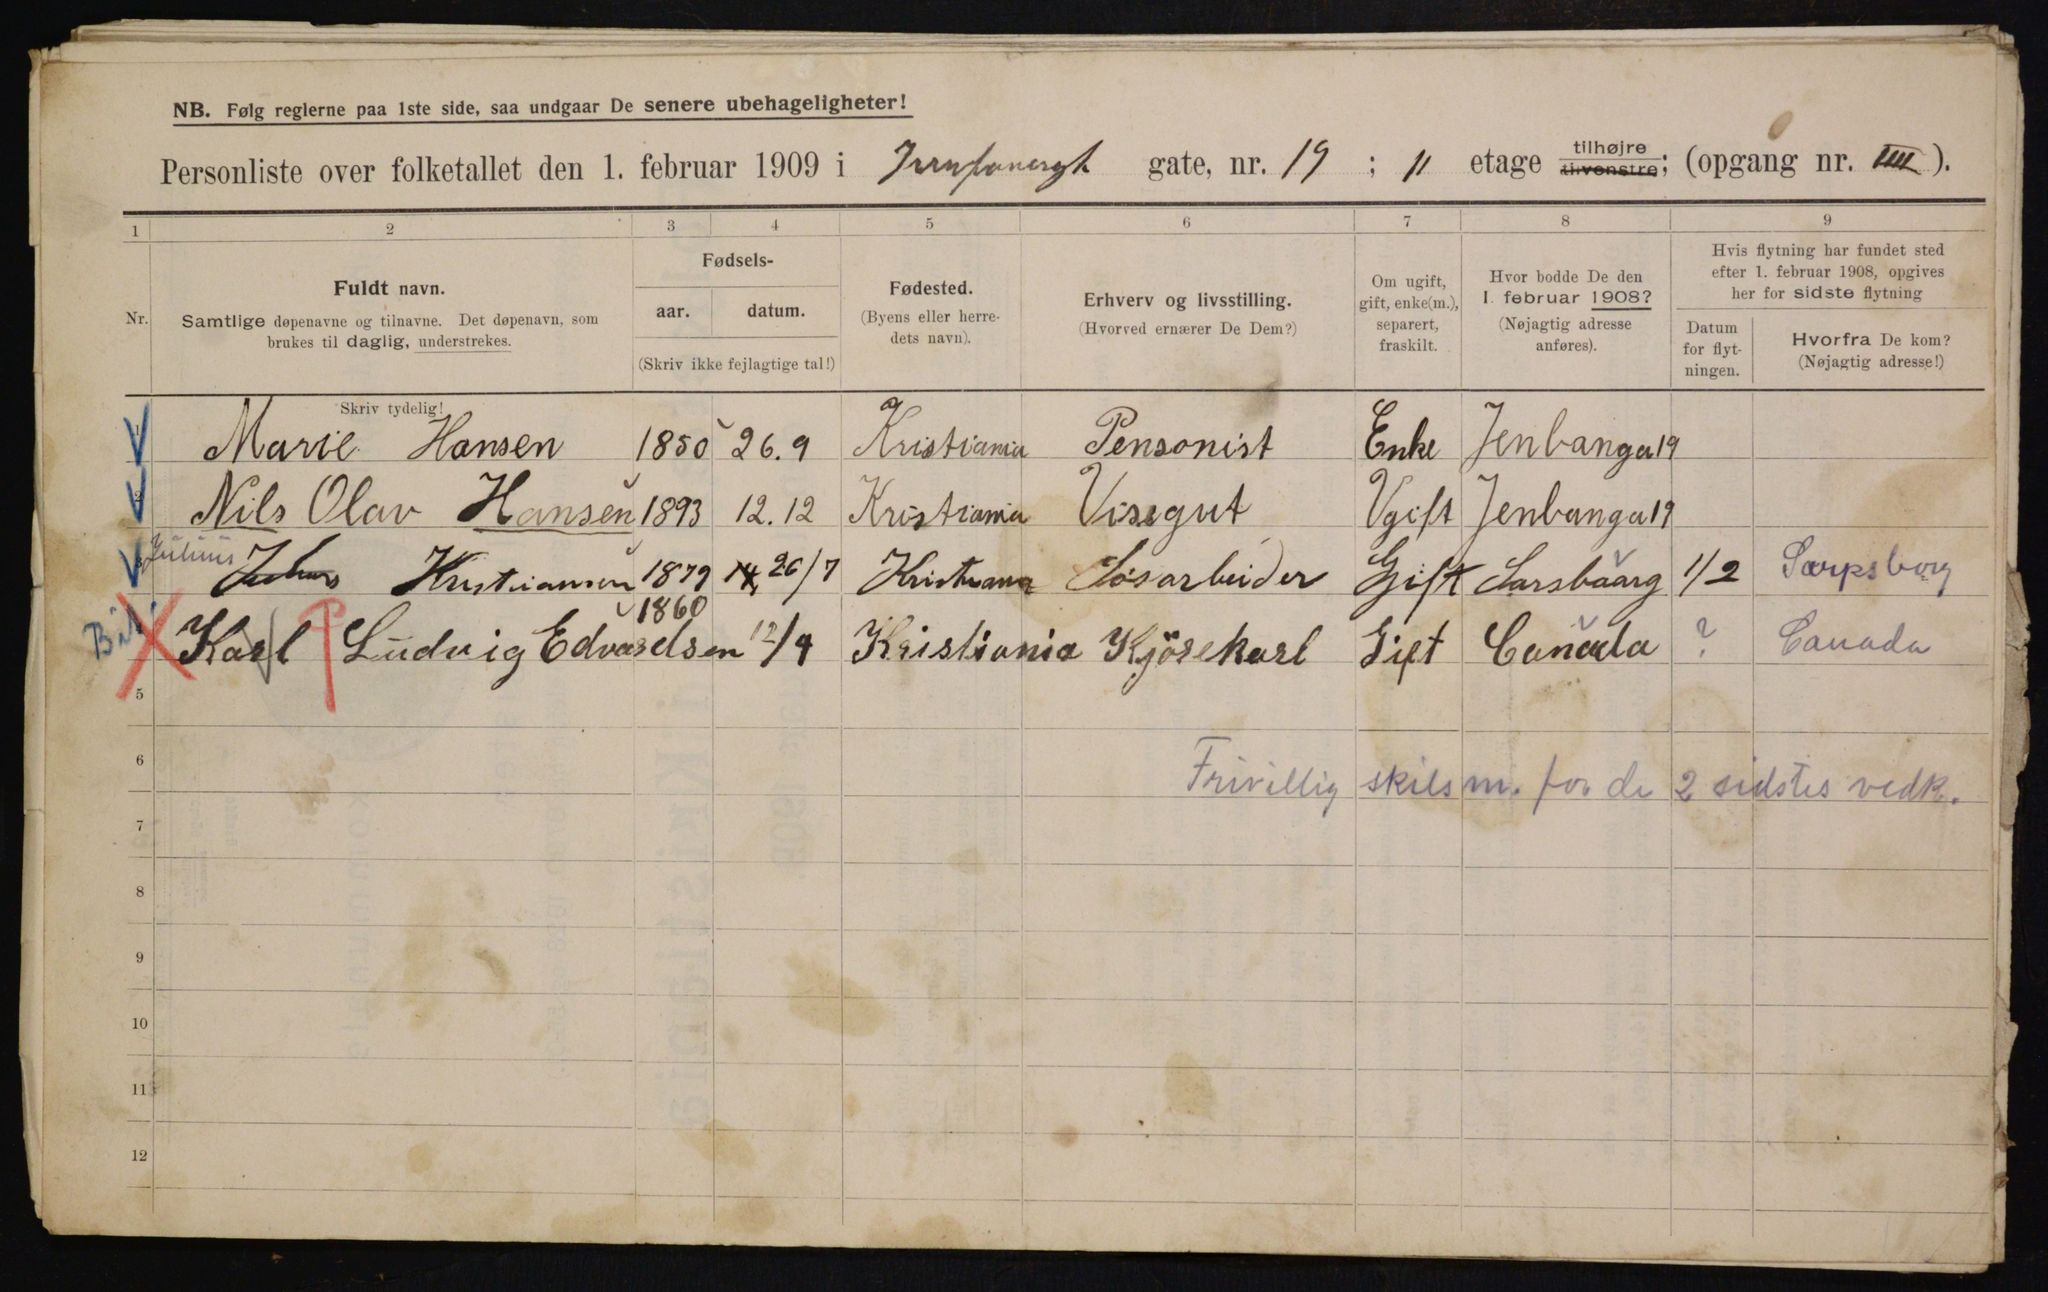 NB. Følg reglerne paa 1ste side, saa undgaar De senere ubehageligheter!
Personliste over folketallet den 1. februar 1909 i gate, nr. 19 ; 11 etage tilhøjre tilvenstre; (opgang nr. III ).
1 2 3 4 5 6 7 8 9
Nr.
Fuldt navn.
Samtlige døpenavne og tilnavne. Det døpenavn, som
brukes til daglig, understrekes.
Fødsels-
aar. datum.
(Skriv ikke fejlagtige tal!)
Fødested.
(Byens eller herre-
dets navn).
Erhverv og livsstilling.
(Hvorved ernærer De Dem?)
Om ugift,
gift, enke(m.),
separert,
fraskilt.
Hvor bodde De den
1. februar 1908?
(Nøjagtig adresse
anføres).
Hvis flytning har fundet sted
efter 1. februar 1908, opgives
her for sidste flytning
Datum
for flyt-
ningen.
Hvorfra De kom?
(Nøjagtig adresse!)
Skriv tydelig!
1 Marie Hansen 1850 26.9 Kristiania Pensonist Enke Jenbanga19
2 Nils Olav Hansen 1893 12.12 Kristiania Visegut Ugift Jenbanga19
3 Julius Julius Kristiansen 1879 26/7 Kristiania Løsarbeider Gift Sarsbaarg 1/2 Sarpsborg
Karl Ludvig Edvardsen 1860 12/4 Kristiania Kjörekarl Gift Canada ? Canada
5
6
Frivillig skilsm. for de 2 sidstes vedk.
7
8
9
10
11
12